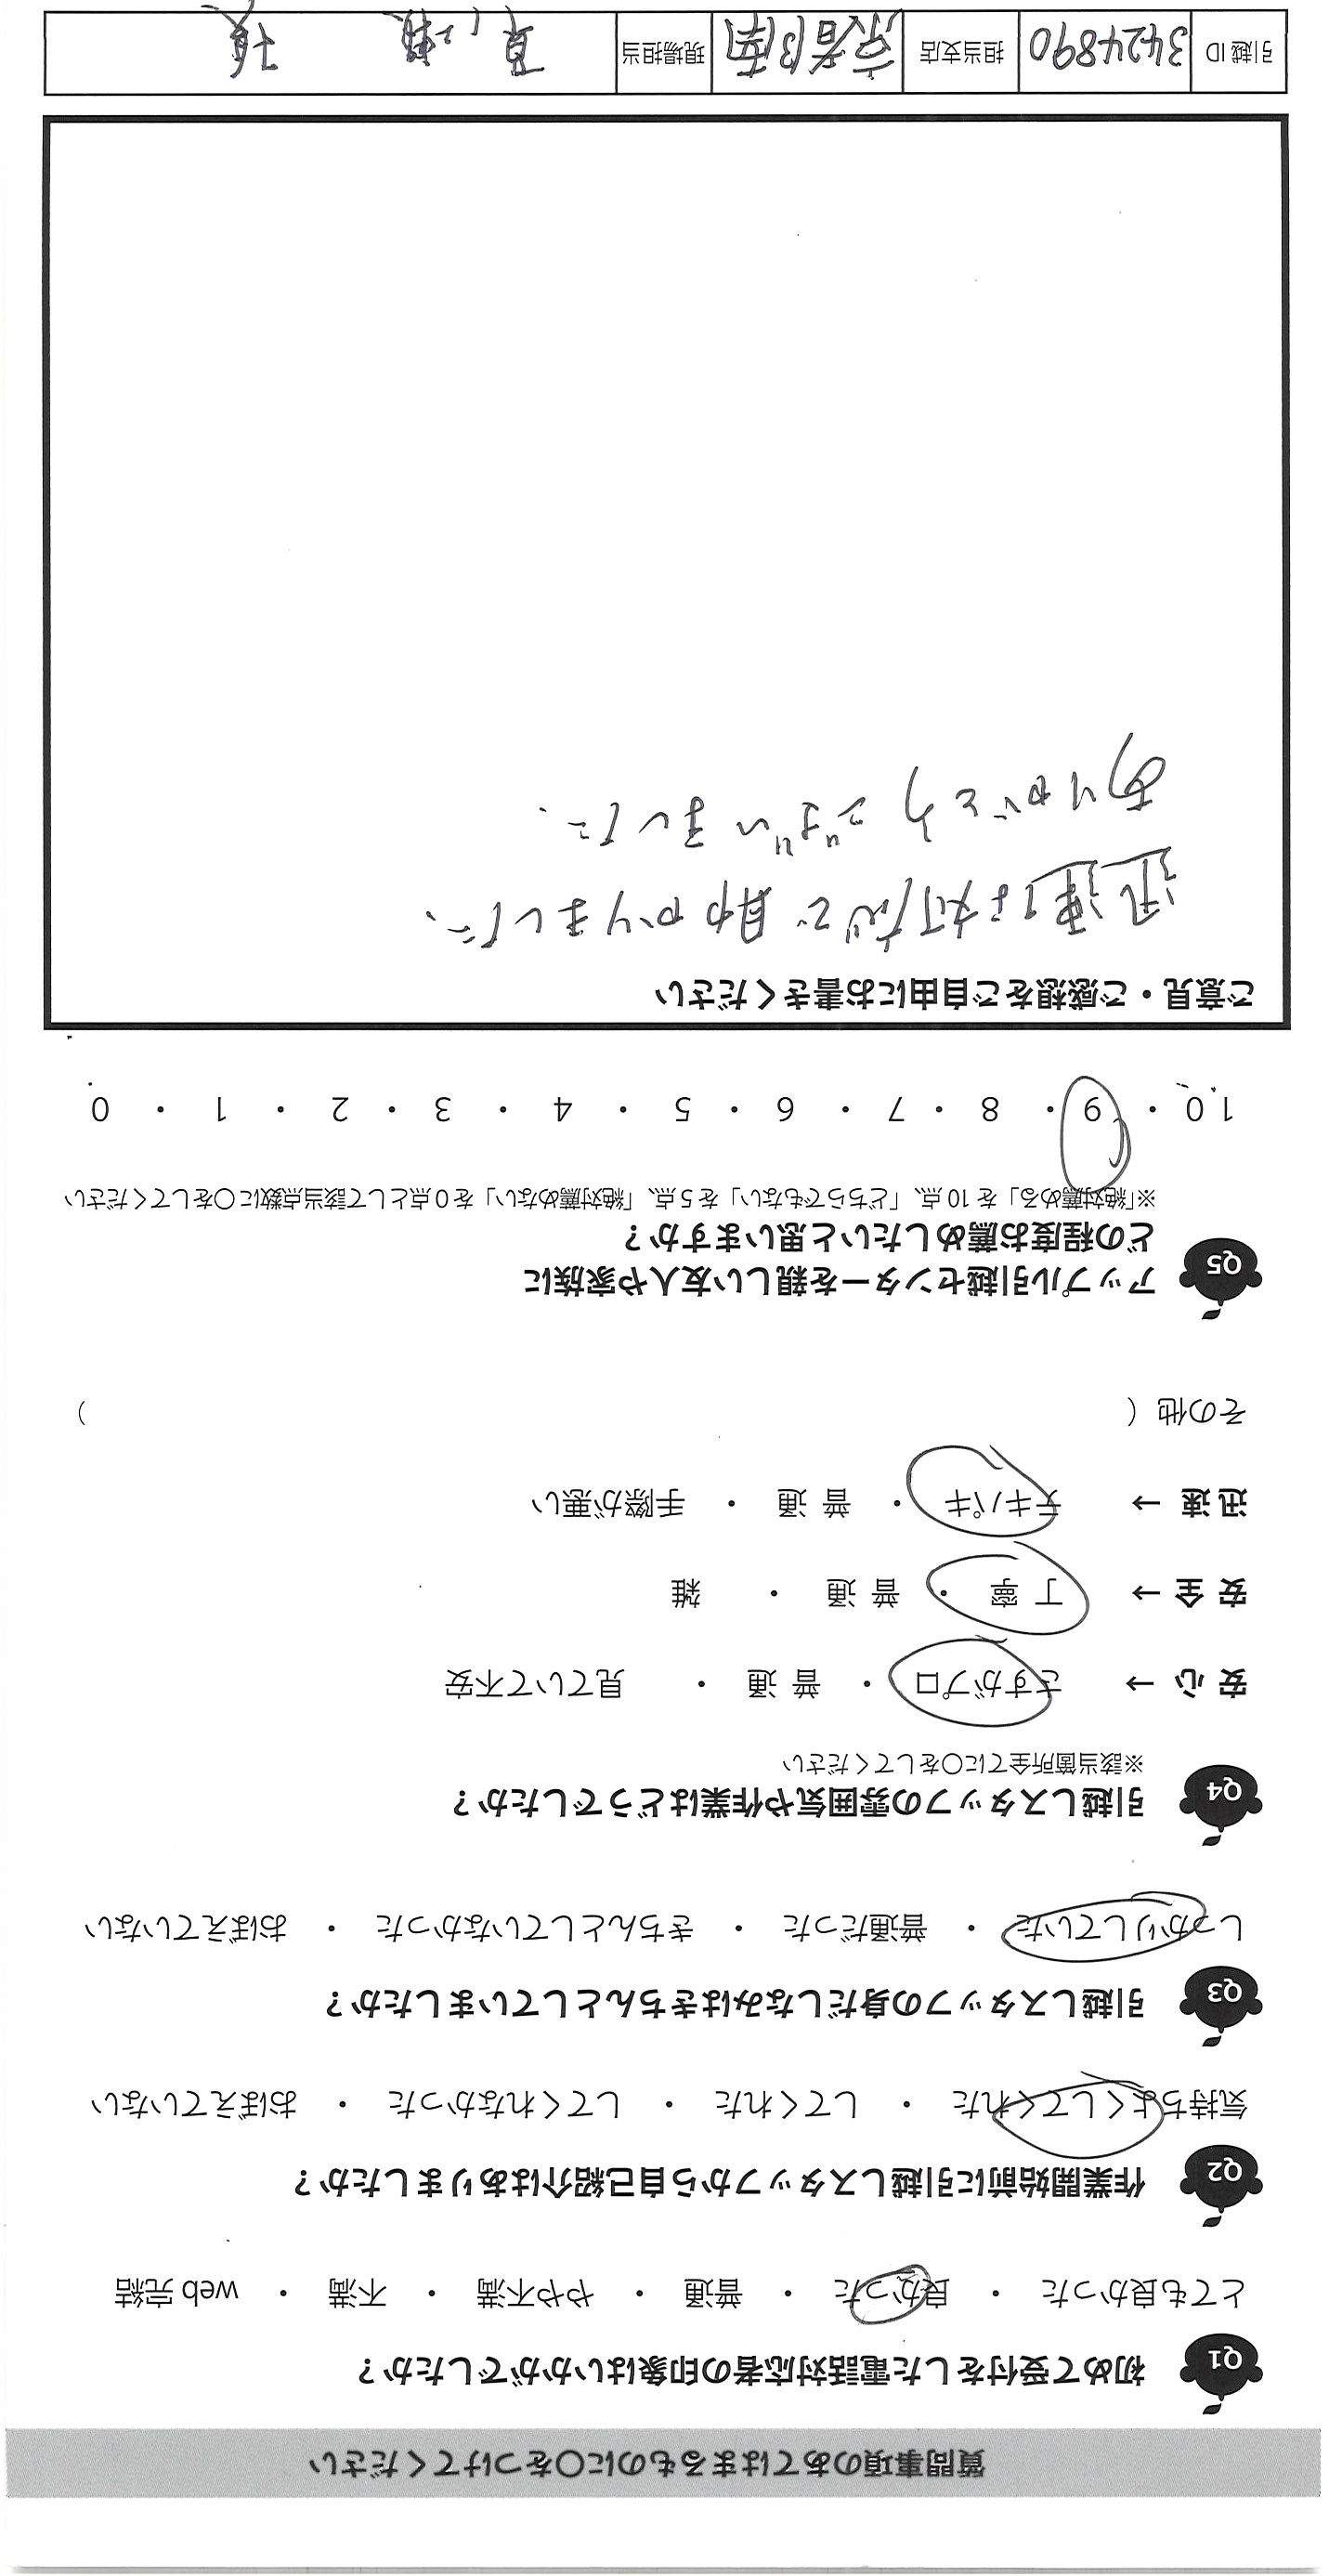 質問事項のあてはまるものに○をつけてください
Q1 初めて受付をした電話対応者の印象はいかがでしたか?
とても良かった ・ 良かった ・ 普通 ・ やや不満 ・ 不満 ・ web 完結
Q2 作業開始前に引越しスタッフから自己紹介はありましたか?
気持ちよくしてくれた ・ してくれた ・ してくれなかった ・ おぼえていない
Q3 引越しスタッフの身だしなみはきちんとしていましたか?
しっかりしていた ・ 普通だった ・ きちんとしていなかった ・ おぼえていない
Q4 引越しスタッフの雰囲気や作業はどうでしたか?
※該当箇所全てに○をしてください
安心 → さすがプロ ・ 普通 ・ 見ていて不安
安全 → 丁寧 ・ 普通 ・ 雑
迅速 → テキパキ ・ 普通 ・ 手際が悪い
その他 ( )
Q5 アップル引越センターを親しい友人や家族に
どの程度お薦めしたいと思いますか?
※「絶対薦める」を10点、「どちらでもない」を5点、「絶対薦めない」を0点として該当点数に○をしてください
10 ・ 9 ・ 8 ・ 7 ・ 6 ・ 5 ・ 4 ・ 3 ・ 2 ・ 1 ・ 0
ご意見・ご感想をご自由にお書きください
迅速な対応で助かりました。
ありがとうございました。
引越ID 3424890 担当支店 京都南 現場担当